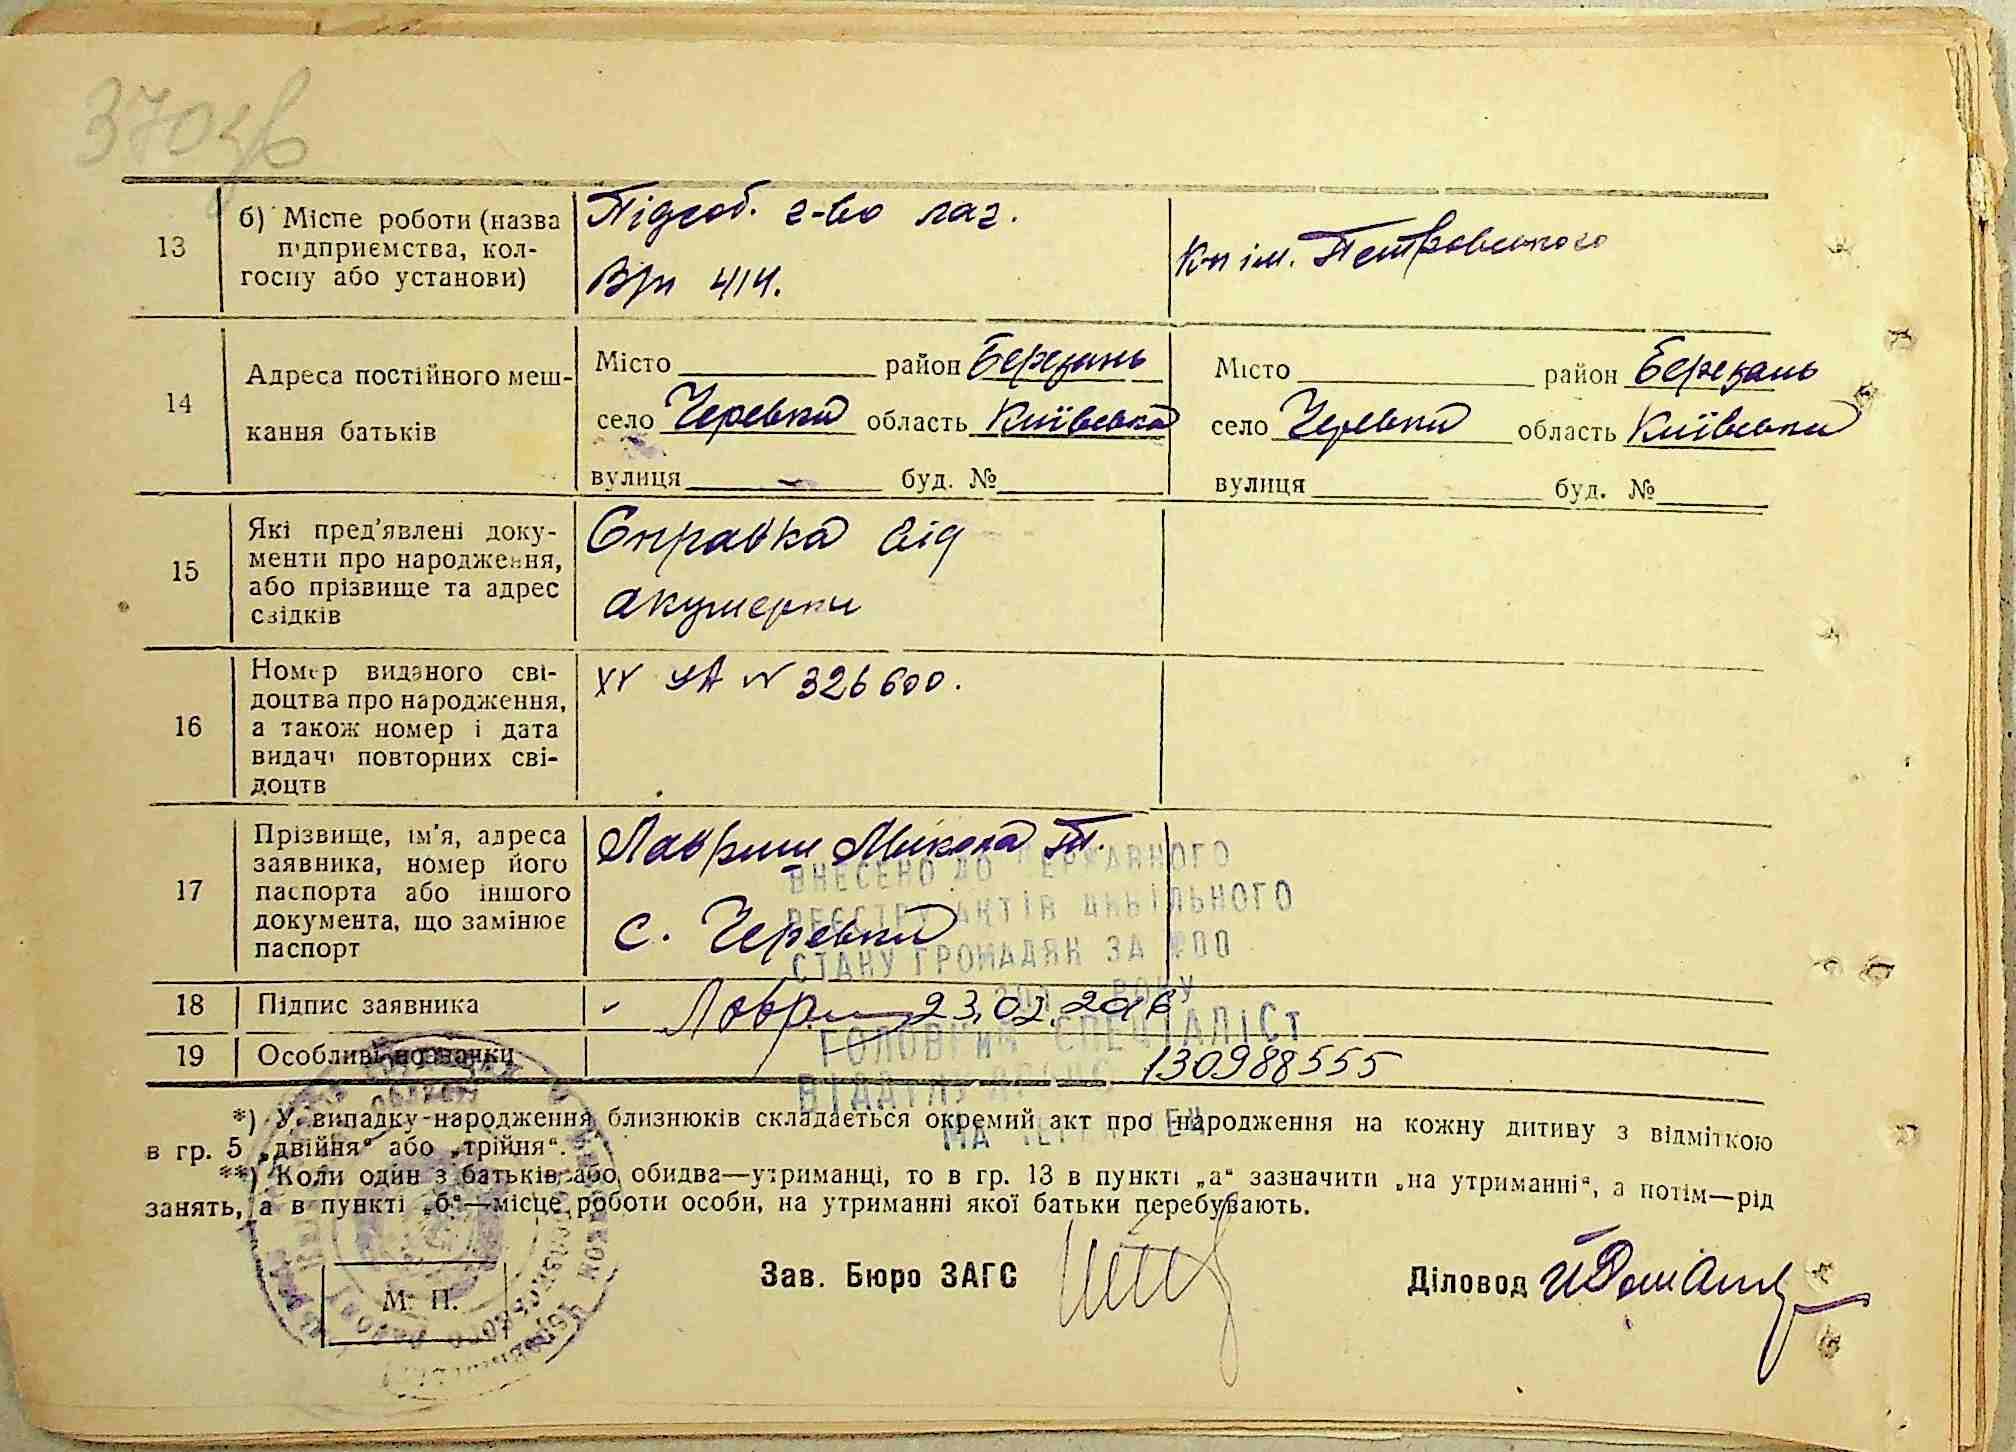 370 зв
13
б) Місце роботи (назва
підприємства, кол-
госпу або установи)
Підсоб. г-во лаг.
Врп 414.
К-п ім. Петровського
14
Адреса постійного меш-
кання батьків
Місто район Березань
село Черевки область Київська
вулиця — буд. №
Місто район Березань
село Черевки область Київська
вулиця буд. №
15
Які пред'явлені доку-
менти про народження,
або прізвище та адрес
свідків
Справка від
акушерки
16
Номер виданого сві-
доцтва про народження,
а також номер і дата
видачі повторних сві-
доцтв
N 326600.
17
Прізвище, ім'я, адреса
заявника, номер його
паспорта або іншого
документа, що замінює
паспорт
Лавриш Микола
с. Черевки
ВНЕСЕНО ДО ДЕРЖАВНОГО
РЕЄСТРУ АКТІВ ЦИВІЛЬНОГО
СТАНУ ГРОМАДЯН ЗА
РОКУ
18
Підпис заявника
Лавриш 23.02.2016
ГОЛОВНИЙ СПЕЦІАЛІСТ
19
Особливі позначки
130988555
ВІДДІЛУ
*) У випадку народження близнюків складається окремий акт про народження на кожну дитину з відміткою
в гр. 5 „двійня“ або „трійня“.
**) Коли один з батьків або обидва—утриманці, то в гр. 13 в пункті „а“ зазначити „на утриманні“, а потім—рід
занять, а в пункті „б“—місце роботи особи, на утриманні якої батьки перебувають.
Зав. Бюро ЗАГС
Діловод
М. П.